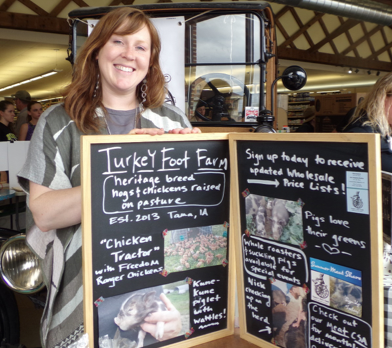 Turkey Foot Farm
heritage breed
hogs & chickens raised
on pasture
EST. 2013 Tama, IA
"Chicken
Tractor"
with Freedom
Ranger Chickens
Kune-
Kune
piglet
with
wattles!
Sign up today to receive
updated wholesale
Price Lists!
Pigs love
their greens
Whole roasters
& suckling pigs
available for
special events
Nick
checking
on
the
herd
Check out
our Meat CSA
for monthly
deliveries